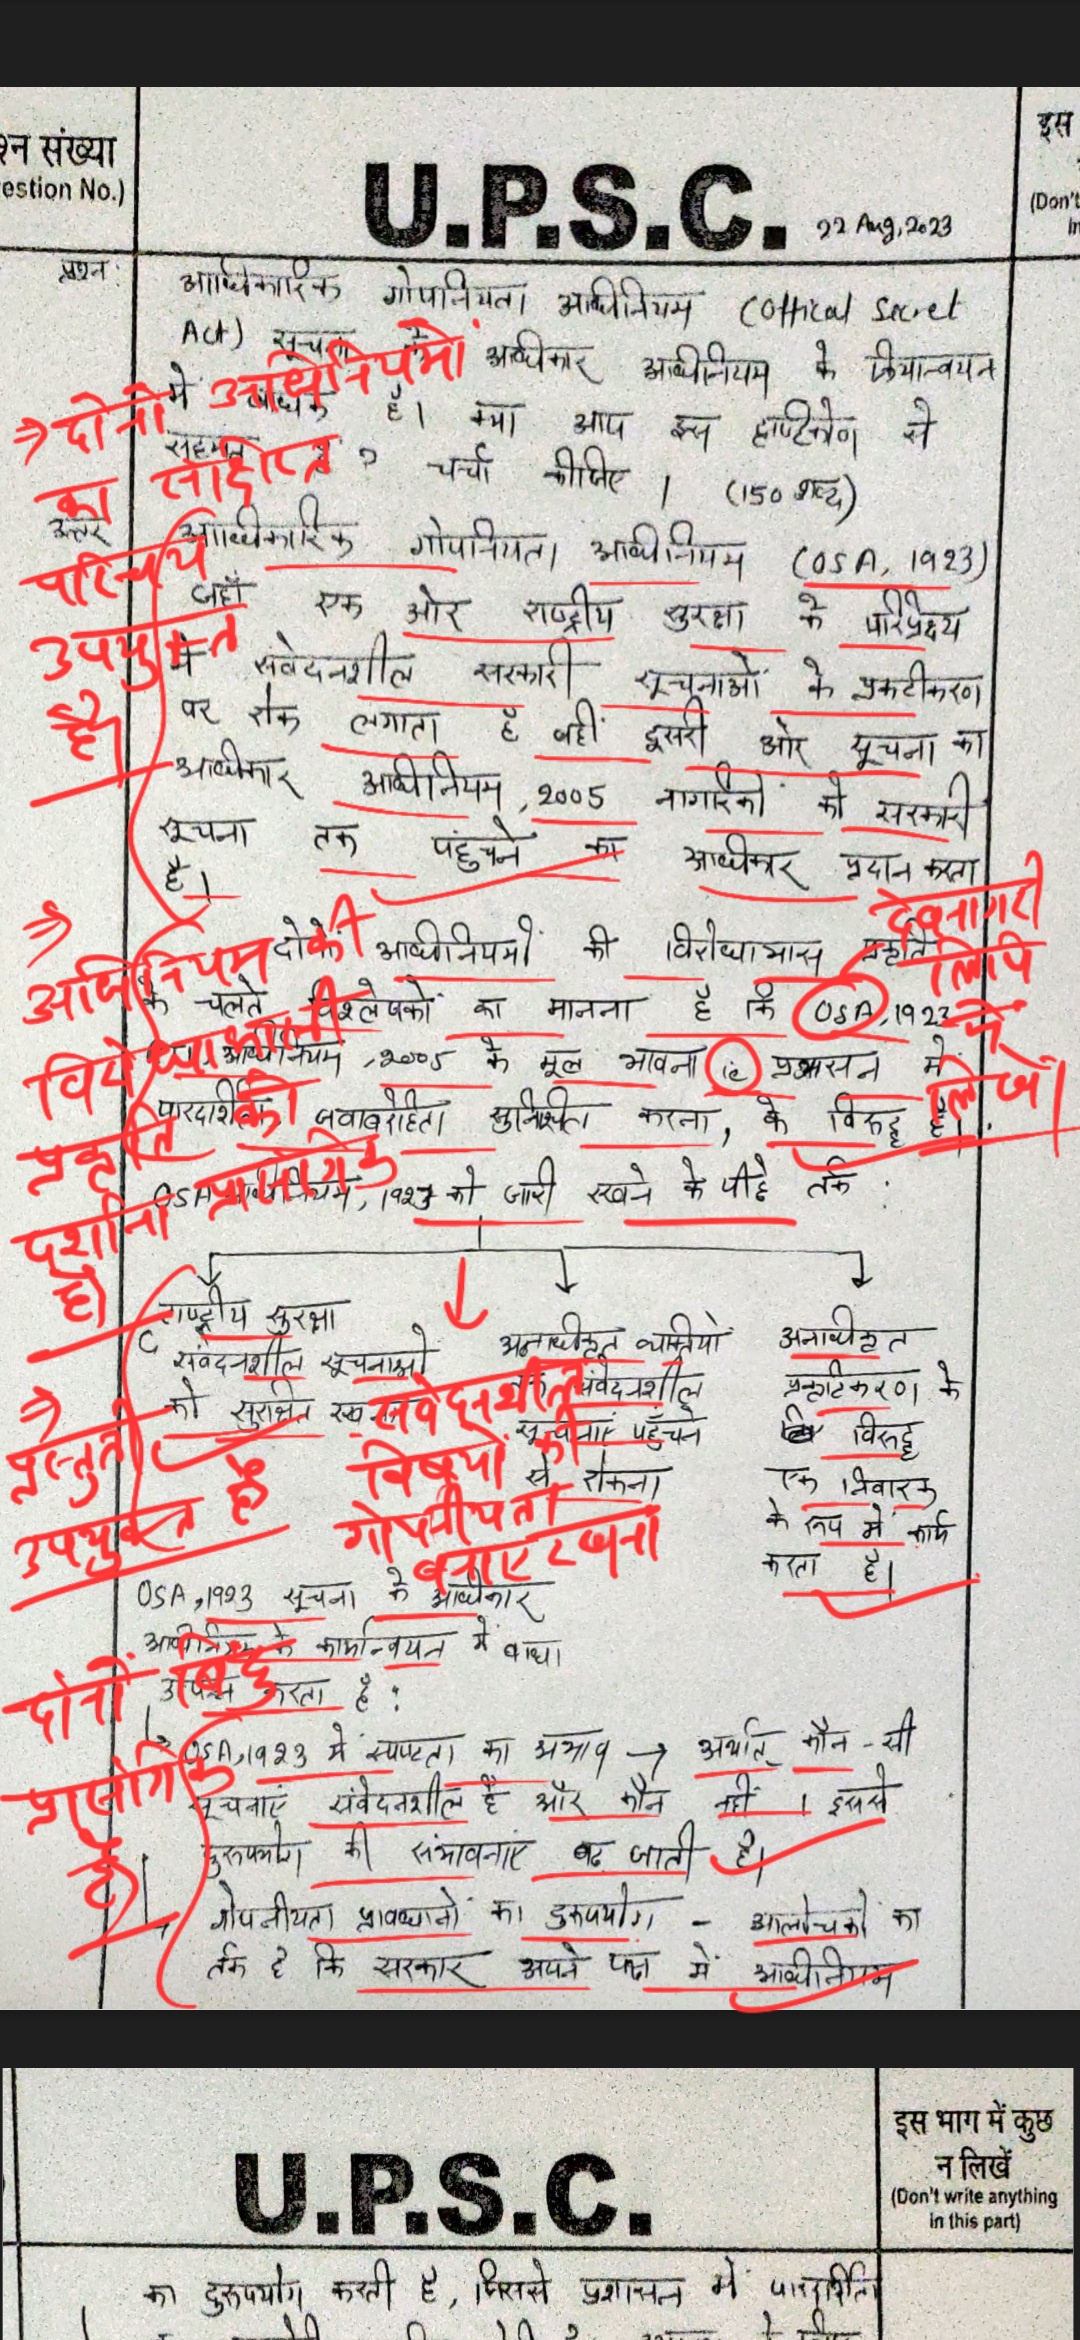 श्न संख्या
estion No.)
U.P.S.C.
22 Aug, 2023
इस
(Don't
in
प्रश्न:
आधिकारिक गोपनियता अधिनियम (Offical Secret
Act) सूचना अधिकार अधिनियम के क्रियान्वयन
में बाधक है। क्या आप इस दृष्टिकोण से
सहमत ? चर्चा कीजिए । (150 शब्द)
⇒ दोनो अधिनियमों
का संक्षिप्त
परिचय
उपयुक्त
है।
उत्तर
आधिकारिक गोपनियता अधिनियम (OSA, 1923)
जहाँ एक ओर राष्ट्रीय सुरक्षा के परिप्रेक्ष्य
में संवेदनशील सरकारी सूचनाओं के प्रकटीकरण
पर रोक लगाता है वहीं दूसरी ओर सूचना का
अधिकार अधिनियम, 2005 नागरिकों को सरकारी
सूचना तक पहुंचने का अधिकार प्रदान करता
है।
⇒
अधिनियम की
विरोधाभासी
प्रकृति को
दर्शाना प्रासंगिक
है।
देवनागरी
लिपि
में
लिखें।
दोनों अधिनियमों की विरोधाभास प्रकृति
के चलते विश्लेषकों का मानना है कि OSA, 1923
अधिनियम, 2005 के मूल भावना ie प्रशासन में
पारदर्शिता जवाबदेहिता सुनिश्चित करना, के विरुद्ध है।
OSA अधिनियम, 1923 को जारी रखने के पीछे तर्क :
राष्ट्रीय सुरक्षा
संवेदनशील सूचनाओं
को सुरक्षित रखना
अनाधीकृत व्यक्तियो
तक संवेदनशील
सूचनाएं पहुँचने
से रोकना
अनाधीकृत
प्रकटिकरण के
विरुद्ध
एक निवारक
के रूप में कार्य
करता है।
⇒
प्रस्तुती
उपयुक्त है
संवेदनशील
विषयो की
गोपनीयता
बनाए रखना
OSA, 1923 सूचना के अधिकार
अधिनियम के कार्यान्वयन में बाधा
उत्पन्न करता है :
दोनों बिंदु
प्रासंगिक
है।
OSA, 1923 में स्पष्टता का अभाव → अर्थात् कौन-सी
सूचनाएं संवेदनशील है और कौन नहीं । इससे
दुरुपयोग की संभावनाएं बढ़ जाती है।
गोपनीयता प्रावधानों का दुरुपयोग - आलोचकों का
तर्क है कि सरकार अपने पक्ष में अधिनियम
U.P.S.C.
इस भाग में कुछ
न लिखें
(Don't write anything
in this part)
का दुरुपयोग करती है, जिससे प्रशासन में पारदर्शिता